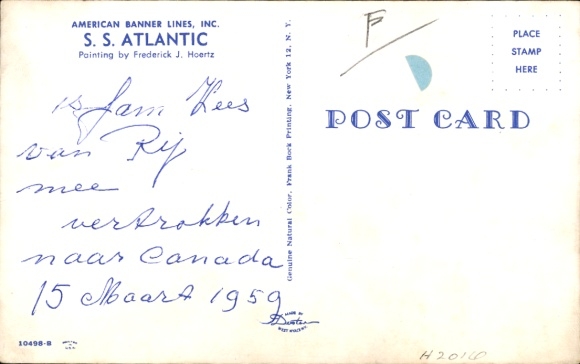 AMERICAN BANNER LINES, INC.
S. S. ATLANTIC
Painting by Frederick J. Hoertz
is Jam Kees
van Rij
mee
vertrokken
naar Canada
15 Maart 1959
10498-B
Genuine Natural Color, Frank Bork Printing, New York 12, N. Y.
MADE BY
Dexter
WEST NYACK, N.Y.
F
PLACE
STAMP
HERE
POST CARD
H2016